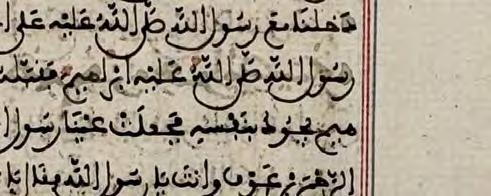 دخلنا مع رسول الله صلى الله عليه على
رسول الله صلى الله عليه ابراهيم فقبله
هيم يجود بنفسه فجعلت عينا رسول ا
الرحمن بن عوف وانت يا رسول الله فقال يا